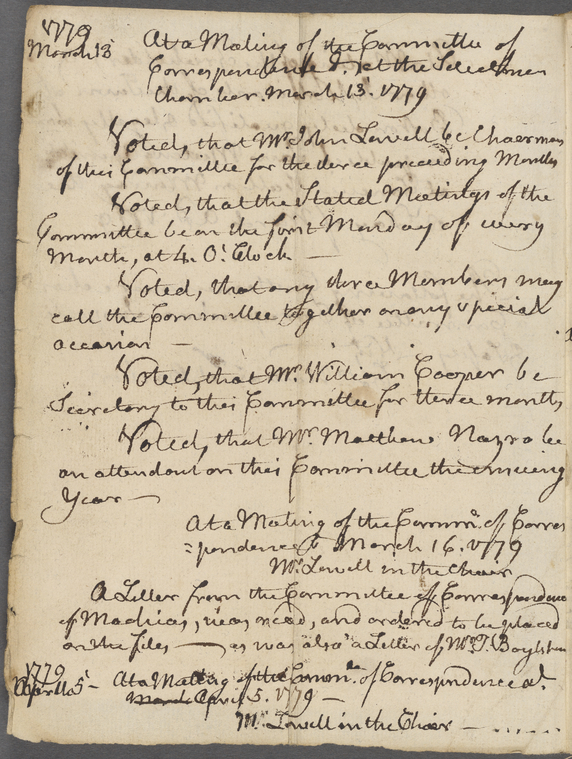 1779
March 13
At a Meeting of the Committee of
Correspondence &c. at the Selectmen
Chamber. March 13. 1779
Voted, that Mr. John Lowell be Chairman
of this Committee for the three preceeding Months
Voted, that the Stated Meetings of the
Committee be on the first Monday of every
Month, at 4. O'Clock —
Voted, that any three Members may
call the Committee together on any special
occasion —
Voted, that Mr. William Cooper be
Secretary to this Committee for three months
Voted, that Mr. Matthew Nazro be
an attendant on this Committee the ensuing
Year —
At a Meeting of the Commee. of Corres
=pondence &c. March 16. 1779
Mr. Lowell in the Chair
A Letter from the Committee of Correspondence
of Machias, was read, and ordered to be placed
on the files — as was also a Letter of Mr. T. Boylston
1779
April 5 —
At a Meeting of the Commee. of Correspondence &c.
March April 5. 1779 —
Mr. Lowell in the Chair —